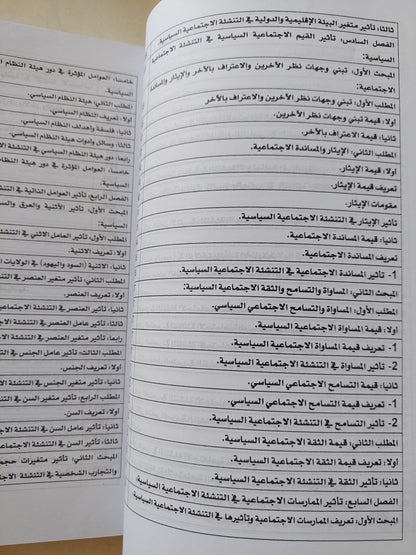 ثالثا، تأثير متغير البيئة الإقليمية والدولية في التنشئة الاجتماعية السياسية.
الفصل السادس، تأثير القيم الاجتماعية السياسية في التنشئة الاجتماعية
السياسية:
المبحث الأول، تبني وجهات نظر الأخرين والاعتراف بالأخر والإيثار والمساندة
الاجتماعية:
المطلب الأول: تبني وجهات نظر الأخرين والاعتراف بالأخر
اولا: قيمة تبني وجهات نظر الأخرين.
ثانيا: قيمة الاعتراف بالأخر.
المطلب الثاني: الإيثار والمساندة الاجتماعية.
اولا: قيمة الإيثار.
تعريف قيمة الإيثار.
مقومات الإيثار.
تأثير الإيثار في التنشئة الاجتماعية السياسية.
ثانيا: قيمة المساندة الاجتماعية.
تعريف المساندة الاجتماعية.
1- تأثير المساندة الاجتماعية في التنشئة الاجتماعية السياسية.
المبحث الثاني: المساواة والتسامح والثقة الاجتماعية السياسية:
المطلب الأول: المساواة والتسامح الاجتماعي السياسي.
اولا: قيمة المساواة الاجتماعية السياسية.
1- تعريف قيمة المساواة الاجتماعية السياسية.
2- تأثير المساواة في التنشئة الاجتماعية السياسية.
ثانيا: قيمة التسامح الاجتماعي السياسي.
1- تعريف قيمة التسامح الاجتماعي السياسي.
2- تأثير التسامح في التنشئة الاجتماعية السياسية.
المطلب الثاني: قيمة الثقة الاجتماعية السياسية.
اولا: تعريف قيمة الثقة الاجتماعية السياسية.
ثانيا: تأثير الثقة في التنشئة الاجتماعية السياسية.
الفصل السابع: تأثير الممارسات الاجتماعية في التنشئة الاجتماعية السياسية:
المبحث الأول: تعريف الممارسات الاجتماعية وتأثيرها في التنشئة الاجتماعية
خامسا: العوامل المؤثرة في دور هيئة النظام
السياسية.
المطلب الثاني: هيئة النظام السياسي.
اولا: تعريف النظام السياسي.
ثانيا: فلسفة واهداف النظام السياسي.
ثالثا: وسائل وادوات هيئة النظام السياسي.
رابعا: دور هيئة النظام السياسي في التنشئة
خامسا: العوامل المؤثرة في دور هيئة النظام
السياسية.
الفصل الرابع: تأثير العوامل الذاتية في التنشئة
المبحث الأول: تأثير الأثنية والعرق
السياسية:
المطلب الأول: تأثير العامل الأثني في
اولا: تعريف الاثنية.
ثانيا: الأثنية (السود واليهود) في الولايات
المطلب الثاني: تأثير متغير العنصر في
اولا: تعريف العنصر.
ثانيا: تأثير العنصر في التنشئة الاجتماعية
ثالثا: تأثير عامل العنصر في التنشئة
رابعا: تأثير متغير العنصر في التنشئة
المطلب الثالث: تأثير عامل الجنس في
اولا: تعريف الجنس.
ثانيا: تأثير متغير الجنس في التنشئة
المطلب الرابع: تأثير متغير السن في التنشئة
اولا: تعريف السن.
ثانيا: تأثير عامل السن في التنشئة الاجتماعية
ثالثا: تأثير متغير السن في التنشئة الاجتماعية
المبحث الثاني: تأثير متغيرات حجم
والتجارب الشخصية في التنشئة الاجتماعية